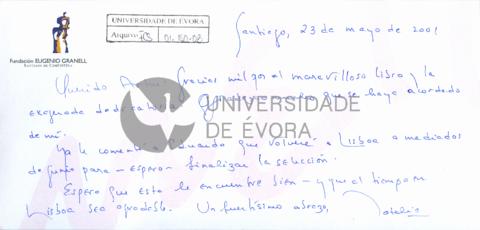 Fundación EUGENIO GRANELL
SANTIAGO DE COMPOSTELA
UNIVERSIDADE DE ÉVORA
Arquivo
Santiago, 23 de mayo de 2001
Querido Gracias mil por el maravilloso libro y la
dedicatoria que se haya acordado
de mí.
Ya le comenté a Eduardo que volveré a Lisboa a mediados
de junio para - espero - finalizar la selección.
Espero que esta le encuentre bien - y que el tiempo en
Lisboa sea agradable. Un fuertísimo abrazo, Natalia
UNIVERSIDADE
DE ÉVORA